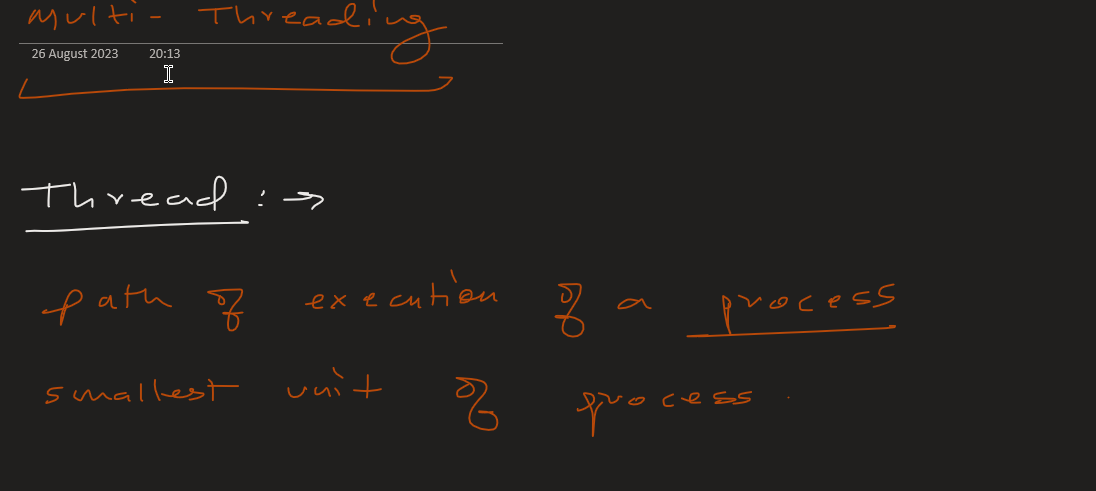 Multi- Threading
26 August 2023 20:13
Thread : →
path of execution of a process
smallest unit of process .